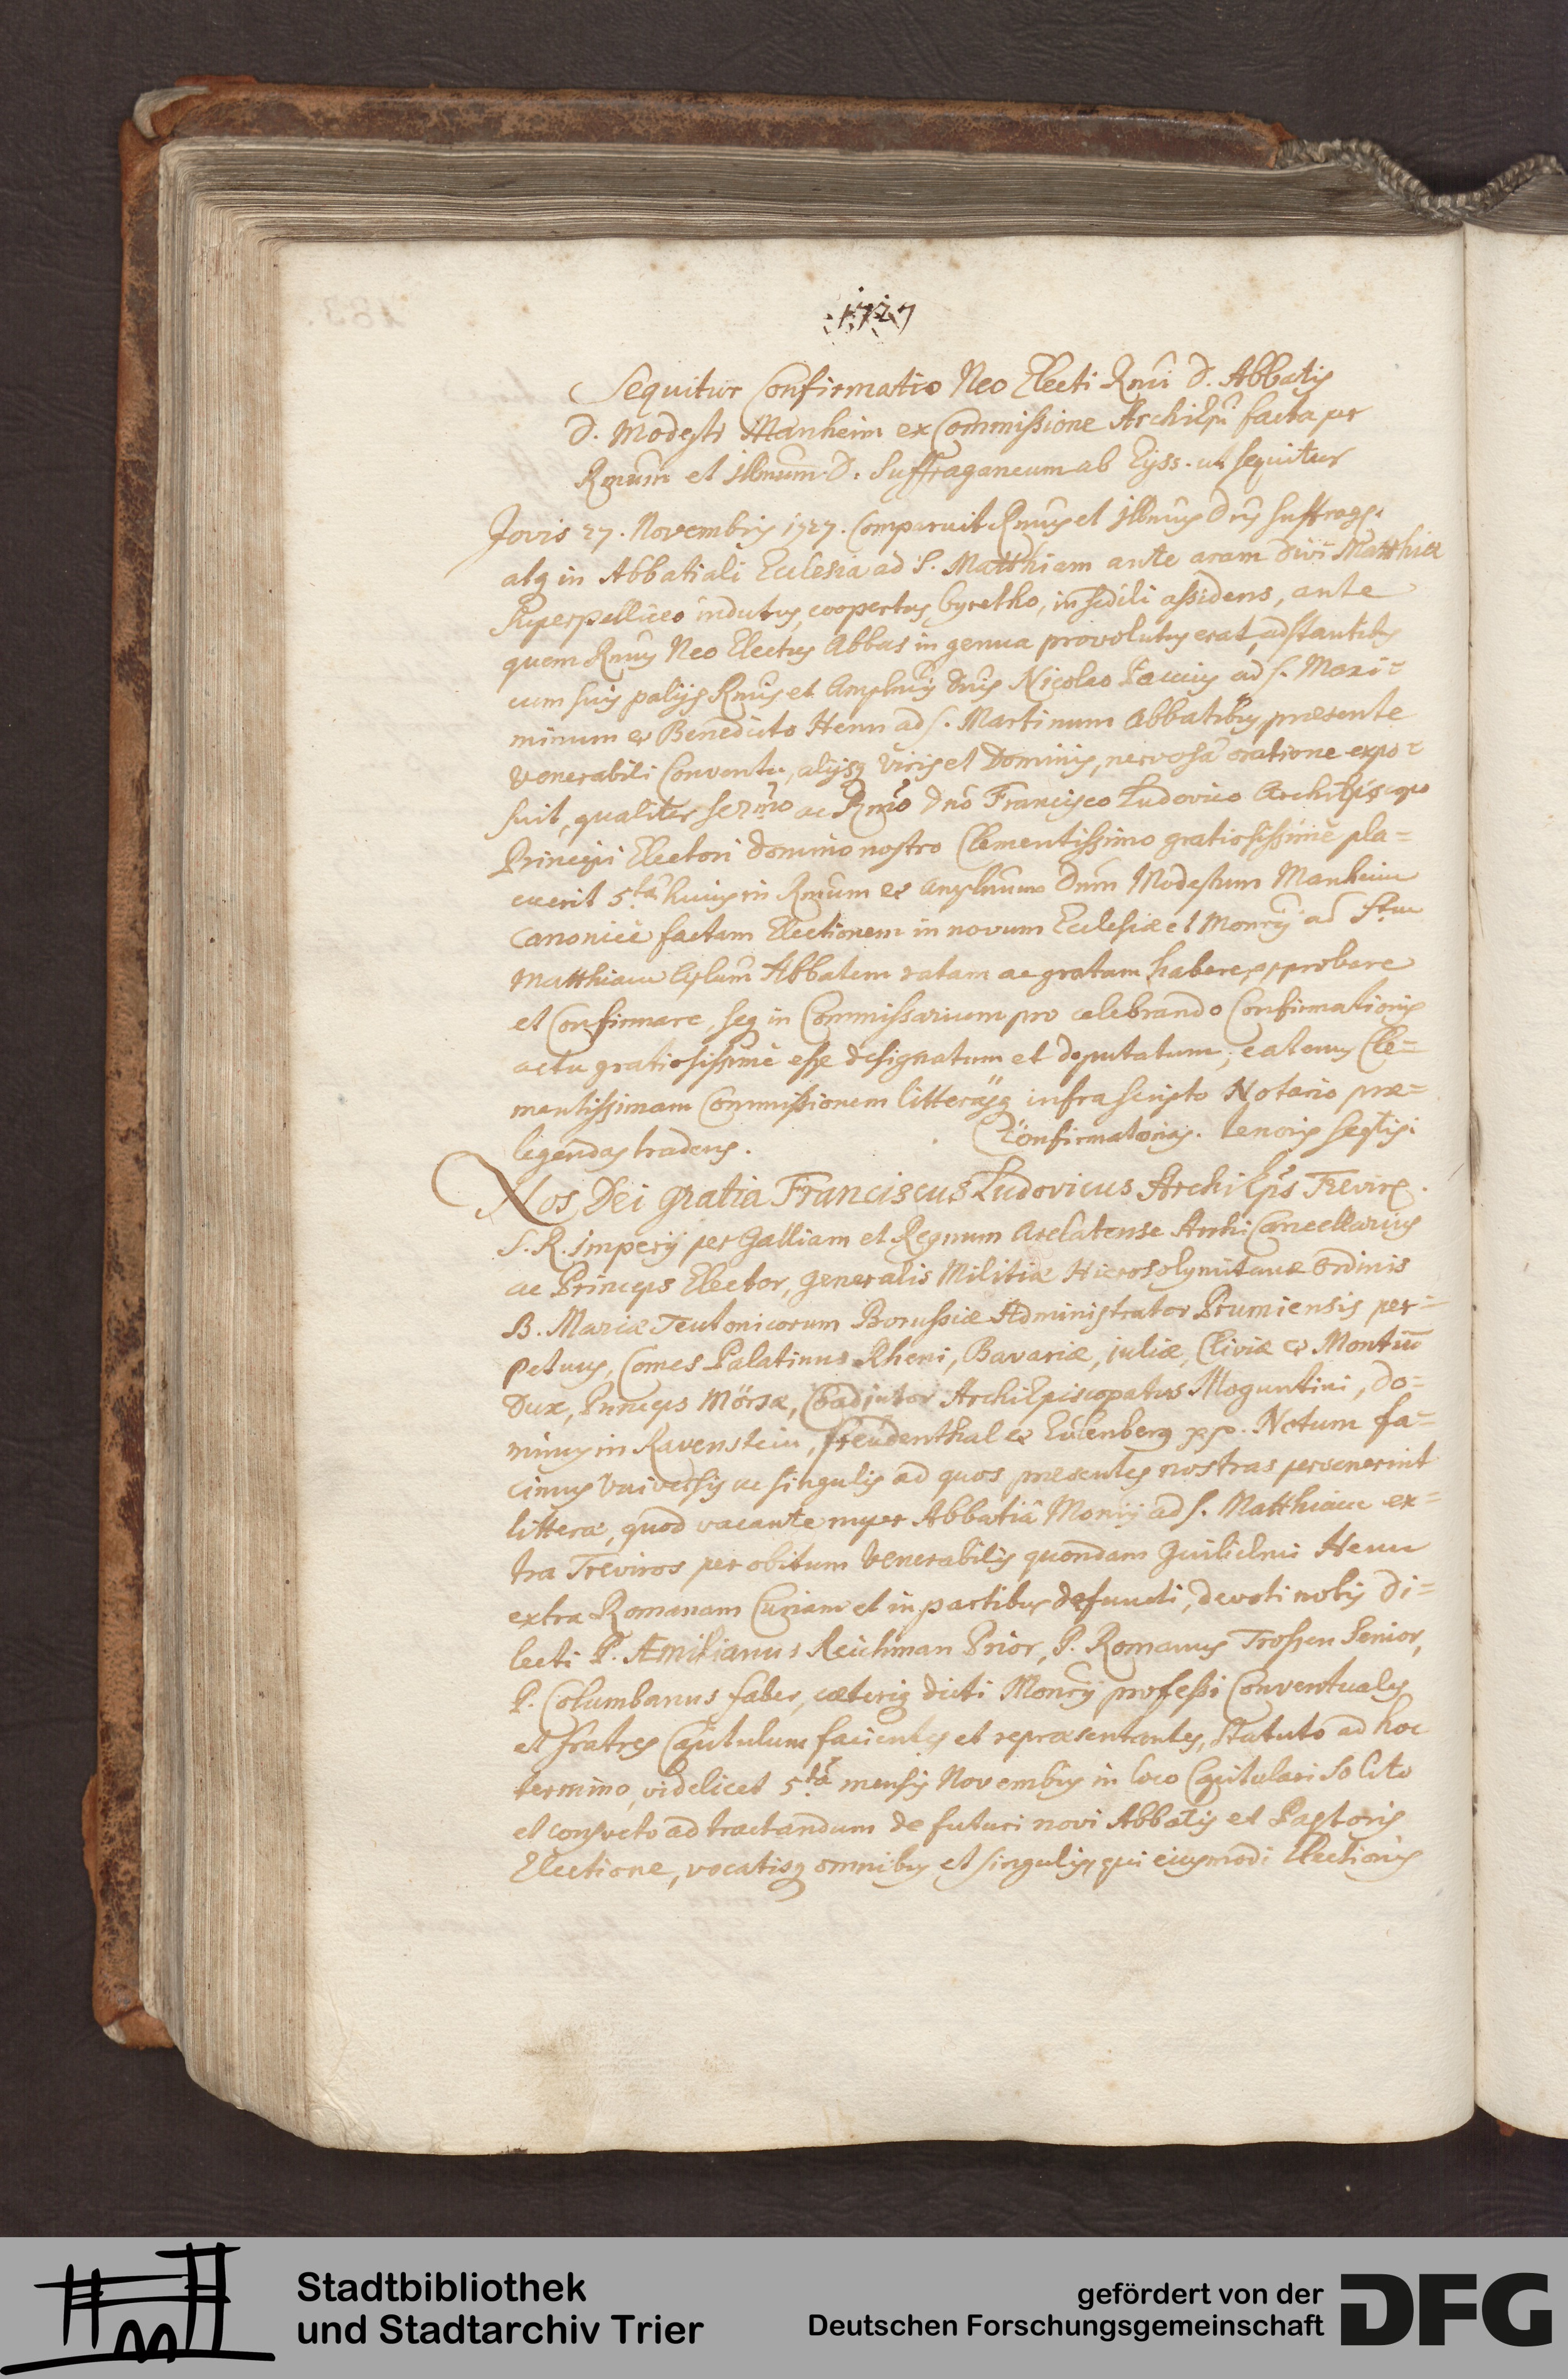 :1727
Sequitur Confirmatio Neo Electi Rmi D. Abbatis
D. Modesti Manheim ex Commissione ArchiEpi facta per
Rmum et Illmum D. Suffraganeum ab Eyss. ut sequitur
Jovis 27. Novembris 1727. Comparuit Rmus et Illmus Dnus Suffrag.
atq in Abbatiali Ecclesia ad S. Matthiam ante aram Divi Matthiæ
superpelliceo indutus, coopertus byretho, in sedili assidens, ante
quem Rmus Neo Electus Abbas in genua provolutus erat, adstantibus
cum suis palijs Rmis et Amplmis Dnis Nicolao Paccius ad S. Maxi-
minum et Benedicto Henn ad S. Martinum Abbatibus præsente
Venerabili Conventu, alijsq Viris et Dominis, nervosâ oratione expo-
suit, qualiter Sermo ac Rmo Dno Francisco Ludovico ArchiEpiscopo
Principi Electori Domino nostro Clementissimo gratiosissimè pla-
cuerit 5tâ huius in Rmum et Amplmum Dnum Modestum Manheim
Canonicè factam Electionem in novum Ecclesiæ et Monrij ad Stum
Matthiam Abbatem ratam ac gratam habere, approbare
et Confirmare, seq in Commissarium pro celebrando Confirmationis
actu gratiosissimè esse designatum et deputatum, eatenus Cle-
mentissimam Commissionem litterasq infrascripto Notario præ-
legendas tradens. Confirmatorias. tenoris seqtis:
Nos Dei gratia Franciscus Ludovicus ArchiEps Trevir.
S. R. Imperij per Galliam et Regnum Arelatense ArchiCancellarius
ac Princeps Elector, Generalis Militiæ Hierosolymitanæ Ordinis
B. Mariæ Teutonicorum Borussiæ Administrator Prumiensis per-
petuus, Comes Palatinus Rheni, Bavariæ, iuliæ, Cliviæ et Montiu
Dux, Princeps Mörsæ, Coadjutor ArchiEpiscopatus Moguntini, Do-
minus in Ravenstein, freudenthal et Eulenberg pp. Notum fa-
cimus Universis ac singulis ad quos præsentes nostras pervenerint
litteræ, quod vacante nuper Abbatiâ Monrij ad S. Matthiam ex-
tra Treviros per obitum Venerabilis quondam Guilielmi Henn
extra Romanam Curiam et in partibus defuncti, devoti nobis di-
lecti P. Æmilianus Reichman Prior, P. Romanus Trossen Senior,
P. Columbanus faber, cæteriq dicti Monrij professi Conventuales
et fratres Capitulum facientes et repræsentantes, Statuto ad hoc
termino, videlicet 5tâ mensis Novembris in loco Capitulari Solito
et consueto ad tractandum de futuri novi Abbatis et Pastoris
Electione, vocatisq omnibus et singulis, qui eiusmodi Electionis
Stadtbibliothek
und Stadtarchiv Trier
gefördert von der
Deutschen Forschungsgemeinschaft
DFG